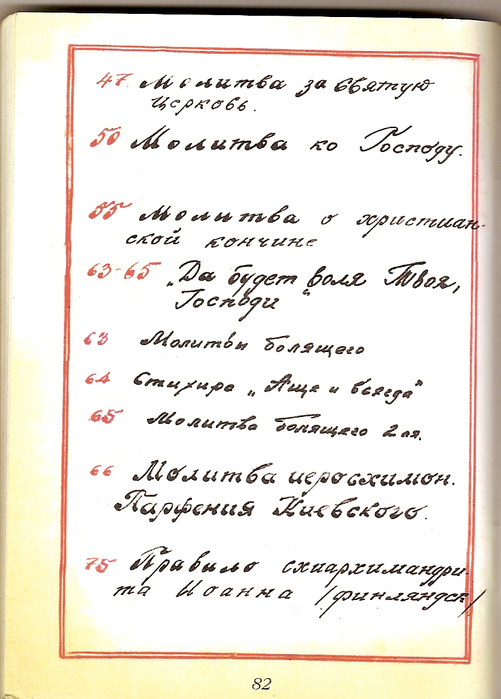 47. Молитва за святую
церковь.
50 Молитва ко Господу.
55 Молитва о христиан-
ской кончине
63-65 „Да будет воля Твоя,
Господи“
63 Молитвы болящего
64 Стихира „Аще и всегда“
65 Молитва болящего 2 ая.
66 Молитва иеросхимон.
Парфения Киевского.
75 Правило схиархимандри-
та Иоанна /финляндск/
82